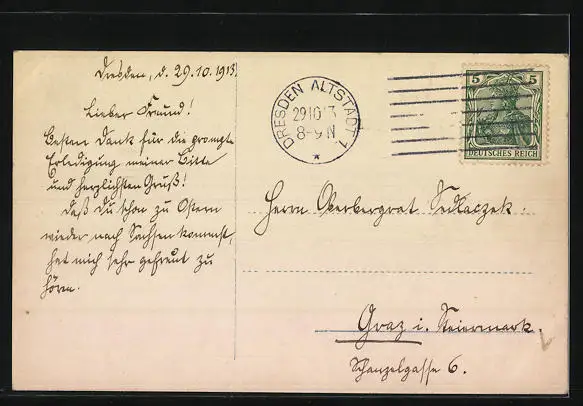 Dresden, d. 29.10.1913.
Lieber Freund!
Besten Dank für die prompte
Erledigung meiner Bitte
und herzlichsten Gruß!
Daß Du schon zu Ostern
wieder nach Sachsen kommst,
hat mich sehr gefreut zu
hören.
DRESDEN ALTSTADT 1
29.10.13
8-9 N
5 5
DEUTSCHES REICH
Herrn Oberbergrat Sedlaczek.
Graz i. Steiermark.
Schanzelgasse 6.